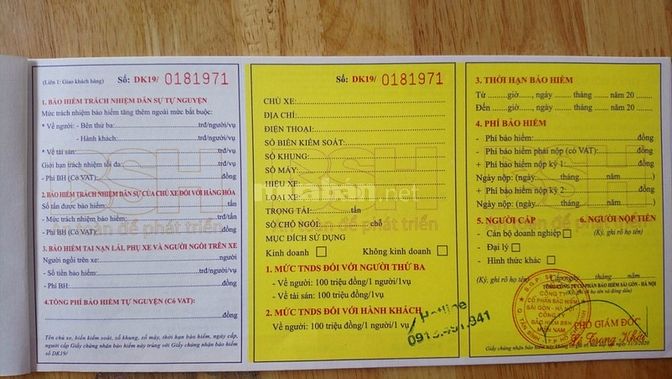 (Liên 1: Giao khách hàng) Số: DK19/ 0181971
1. BẢO HIỂM TRÁCH NHIỆM DÂN SỰ TỰ NGUYỆN
Mức trách nhiệm bảo hiểm tăng thêm ngoài mức bắt buộc:
* Về người: - Bên thứ ba:........trđ/người/vụ
- Hành khách:........trđ/người/vụ
* Về tài sản:........trđ/vụ
Giới hạn trách nhiệm tối đa:........trđ/vụ
- Phí BH (Có VAT):........đồng
2. BẢO HIỂM TRÁCH NHIỆM DÂN SỰ CỦA CHỦ XE ĐỐI VỚI HÀNG HÓA
Số tấn được bảo hiểm:........tấn
- Mức trách nhiệm bảo hiểm:........trđ/tấn
- Phí BH (Có VAT):........đồng
3. BẢO HIỂM TAI NẠN LÁI, PHỤ XE VÀ NGƯỜI NGỒI TRÊN XE
Người ngồi trên xe:........người
- Số tiền bảo hiểm:........trđ/người/vụ
- Phí BH:........đồng
4.TỔNG PHÍ BẢO HIỂM TỰ NGUYỆN (Có VAT):
........đồng
Tên chủ xe, biển kiểm soát, số khung, số máy, thời hạn bảo hiểm, ngày cấp,
người cấp Giấy chứng nhận bảo hiểm này trùng với Giấy chứng nhận bảo hiểm
số DK19/
Số: DK19/ 0181971
CHỦ XE:
ĐỊA CHỈ:
ĐIỆN THOẠI:
SỐ BIỂN KIỂM SOÁT:
SỐ KHUNG:
SỐ MÁY:
HIỆU XE:
LOẠI XE:
TRỌNG TẢI:........tấn
SỐ CHỖ NGỒI:........chỗ
MỤC ĐÍCH SỬ DỤNG
Kinh doanh Không kinh doanh
1. MỨC TNDS ĐỐI VỚI NGƯỜI THỨ BA
- Về người: 100 triệu đồng/1 người/1vụ
- Về tài sản: 100 triệu đồng/1vụ
2. MỨC TNDS ĐỐI VỚI HÀNH KHÁCH
Về người: 100 triệu đồng/1 người/1 vụ
Hotline
3. THỜI HẠN BẢO HIỂM
Từ......giờ, ngày......tháng......năm 20....
Đến......giờ, ngày......tháng......năm 20....
4. PHÍ BẢO HIỂM
- Phí bảo hiểm:........đồng
- Phí bảo hiểm phải nộp (có VAT):........đồng
- Phí bảo hiểm nộp kỳ 1:........đồng
Ngày nộp: (ngày......tháng......năm......)
+ Phí bảo hiểm nộp kỳ 2:........đồng
Ngày nộp: (ngày......tháng......năm......)
5. NGƯỜI CẤP 6. NGƯỜI NỘP TIỀN
- Cán bộ doanh nghiệp (Ký, ghi rõ họ tên)
- Đại lý
- Hình thức khác
(Ký, ghi rõ họ tên) Cấp ngày tháng năm
TỔNG CÔNG TY CỔ PHẦN BẢO HIỂM SÀI GÒN - HÀ NỘI
CÔNG TY
CỔ PHẦN BẢO HIỂM
SÀI GÒN - HÀ NỘI
CÔNG TY
BẢO HIỂM BSH
MIỀN NAM
PHÓ GIÁM ĐỐC
BSH
Bạn để phát triển
muaban.net